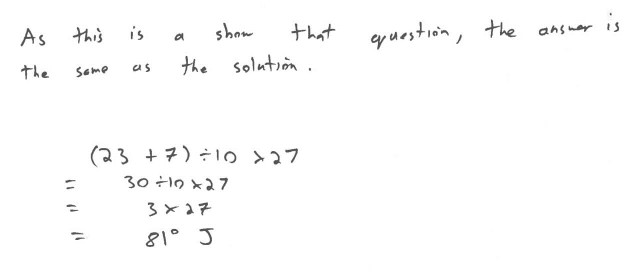 As this is a show that question, the answer is
the same as the solution.
(23 + 7) ÷ 10 × 27
= 30 ÷ 10 × 27
= 3 × 27
= 81° J